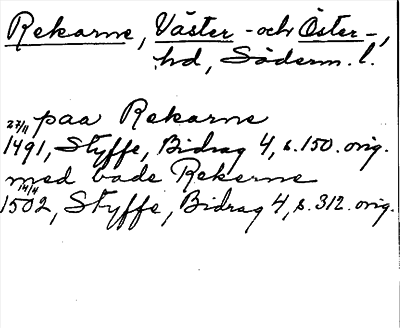 Rekarne, Väster- och Öster-,
hd, Söderm. l.
27/11 paa Rekarne
1491, Styffe, Bidrag 4, s. 150. orig.
med bade Rekerne
14/4
1502, Styffe, Bidrag 4, s. 312. orig.